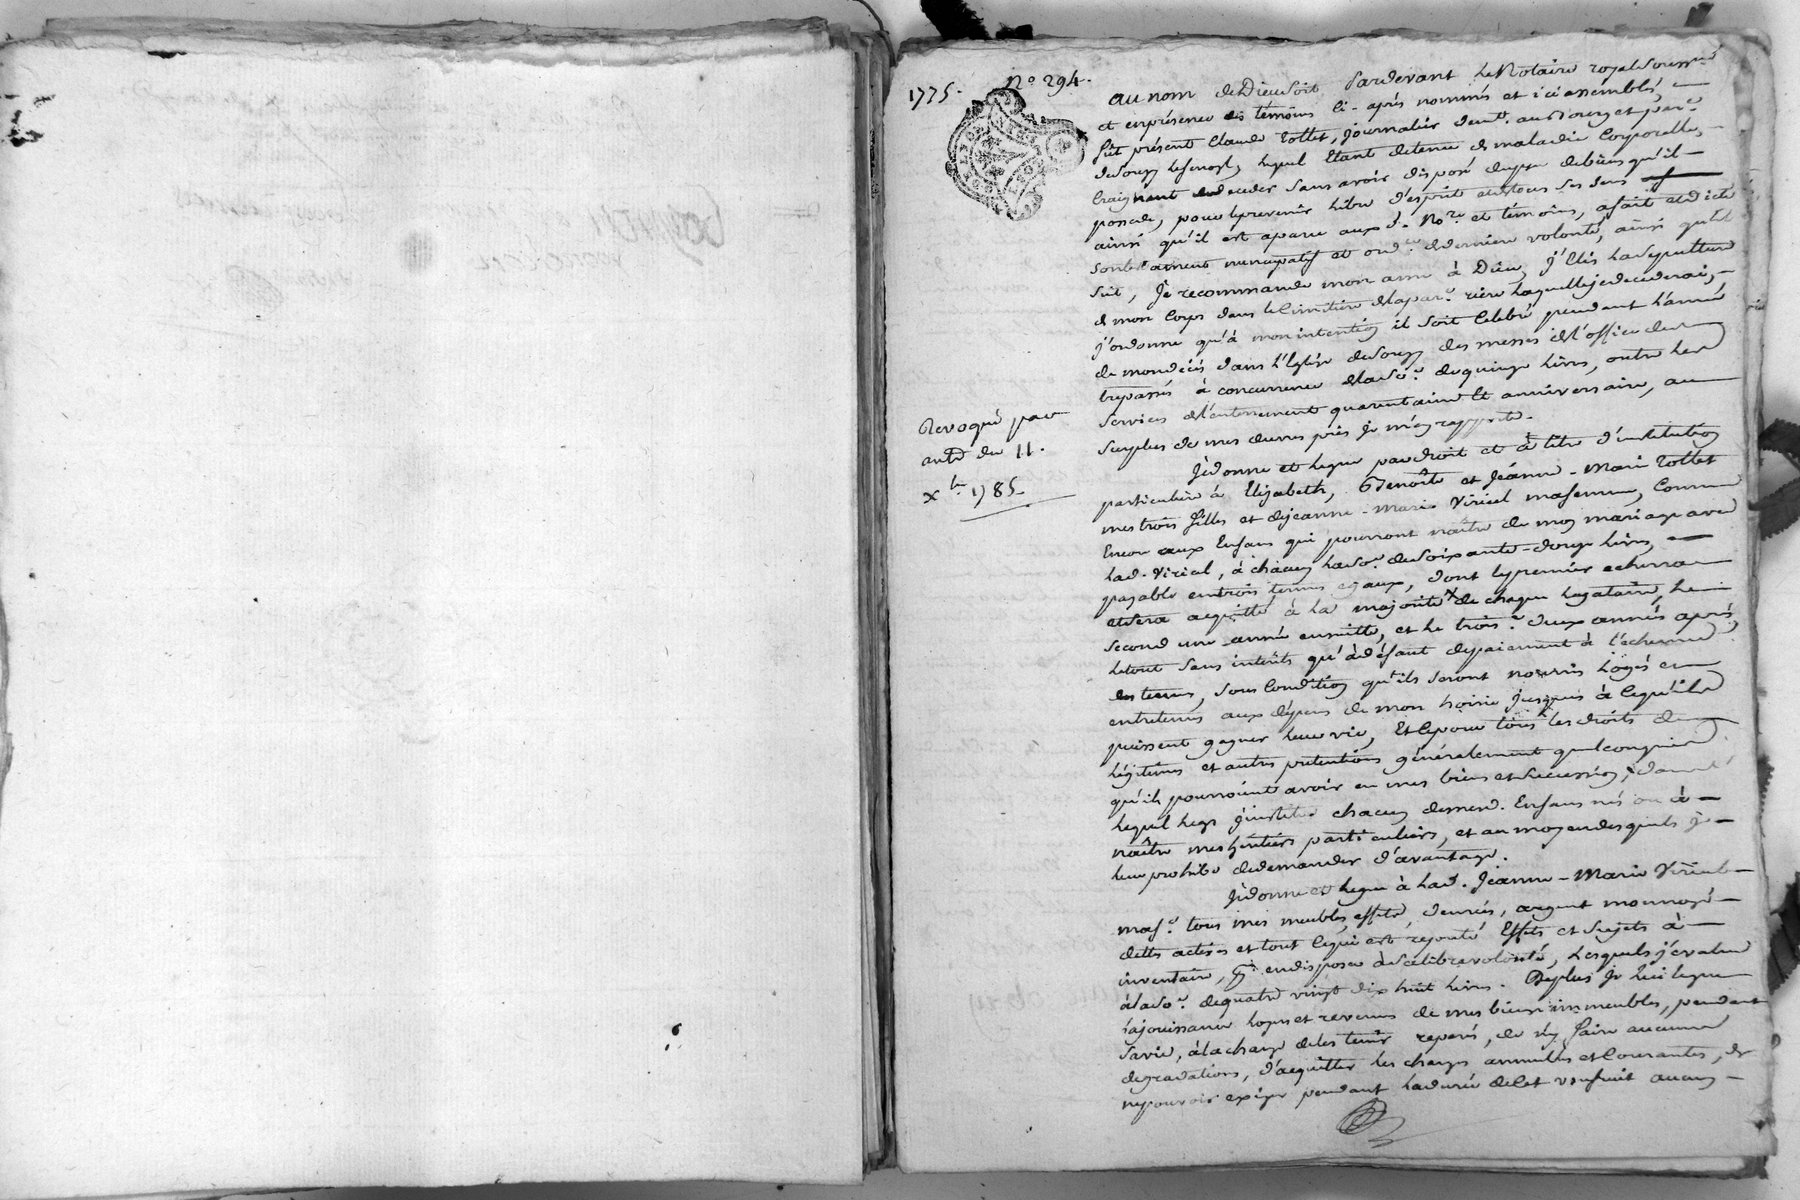 1775.
N.o 294.
au nom de Dieu soit, Pardevant le Notaire royal soussné
et en présence des témoins ci-après nommés et ici assemblés,
fut présent Claude Tollet, journalier demt. au Bourg et parr.e
de Souzy lequel Etant detenu de maladie Corporelle,
Craignant de deceder sans avoir disposé du peu de biens qu'il
possede, pour le prevenir libre d'esprit et de tous ses sens
ainsi qu'il est aparu aux d. No.re et témoins, a fait et dicté
son testament nuncupatif et ord.ce de derniere volonté, ainsi qu'il
suit, Je recommande mon ame à Dieu, j'Elis la sepulture
de mon Corps dans le Cimetière de la par.e riere laquelle je decederai,
j'ordonne qu'à mon intention il soit Celebré pendant l'année
de mon décés dans l'Eglise de Souzy des messes et l'office des
trepassés à concurrence de la so.e de quinze livres, outre les
services de l'enterrement quarantaine et anniversaire, au
surplus de mes œuvres pies je m'en rapporte.
Revoqué par
acte du 11.
Xbre 1785
Je donne et legue par droit et à titre d'institution
particuliere à Elizabeth, Benoîte et Jeanne-Marie Tollet
mes trois filles et de jeanne-Marie Viricel ma femme, Comme
Encore aux Enfans qui pourront naître de mon mariage avec
lad. Viricel, à chacun la so.e de soixante-douze livres,
payable en trois termes egaux, dont le premier echerra
et sera acquitté à la majorité de chaque legataire, le
second une année ensuitte, et le trois.e deux années après,
le tout sans interêts qu'à défaut de paiement à l'echeance
des termes, sous Condition qu'ils seront nourris logés et
entretenus aux dépens de mon hoirie jusques à ce qu'ils
puissent gagner leur vie, Et ce pour tous les droits de
légitimes et autres pretentions généralement quelconques
qu'ils pourroient avoir en mes biens et succession, dans
lequel legs j'institue chacun de mesd. Enfans nés ou à
naître mes héritiers particuliers, et au moyen desquels je
leur prohibe de demander d'avantage.
Je donne et legue à lad. Jeanne-Marie Viricel
ma f.e tous mes meubles, effets, denrées, argent monnoyé
dettes actives et tout ce qui est réputé Effets et sujets à
inventaire, p.r en disposer à sa libre volonté, lesquels j'évalue
à la so.e de quatre vingt dix huit livres. De plus je lui legue
la jouissance loyers et revenus de mes biens immeubles, pendant
sa vie, à la charge de les tenir reparés, de n'y faire aucunes
degradations, d'acquitter les charges annuelles et Courantes, de
ne pouvoir exiger pendant la durée de cet usufruit aucun